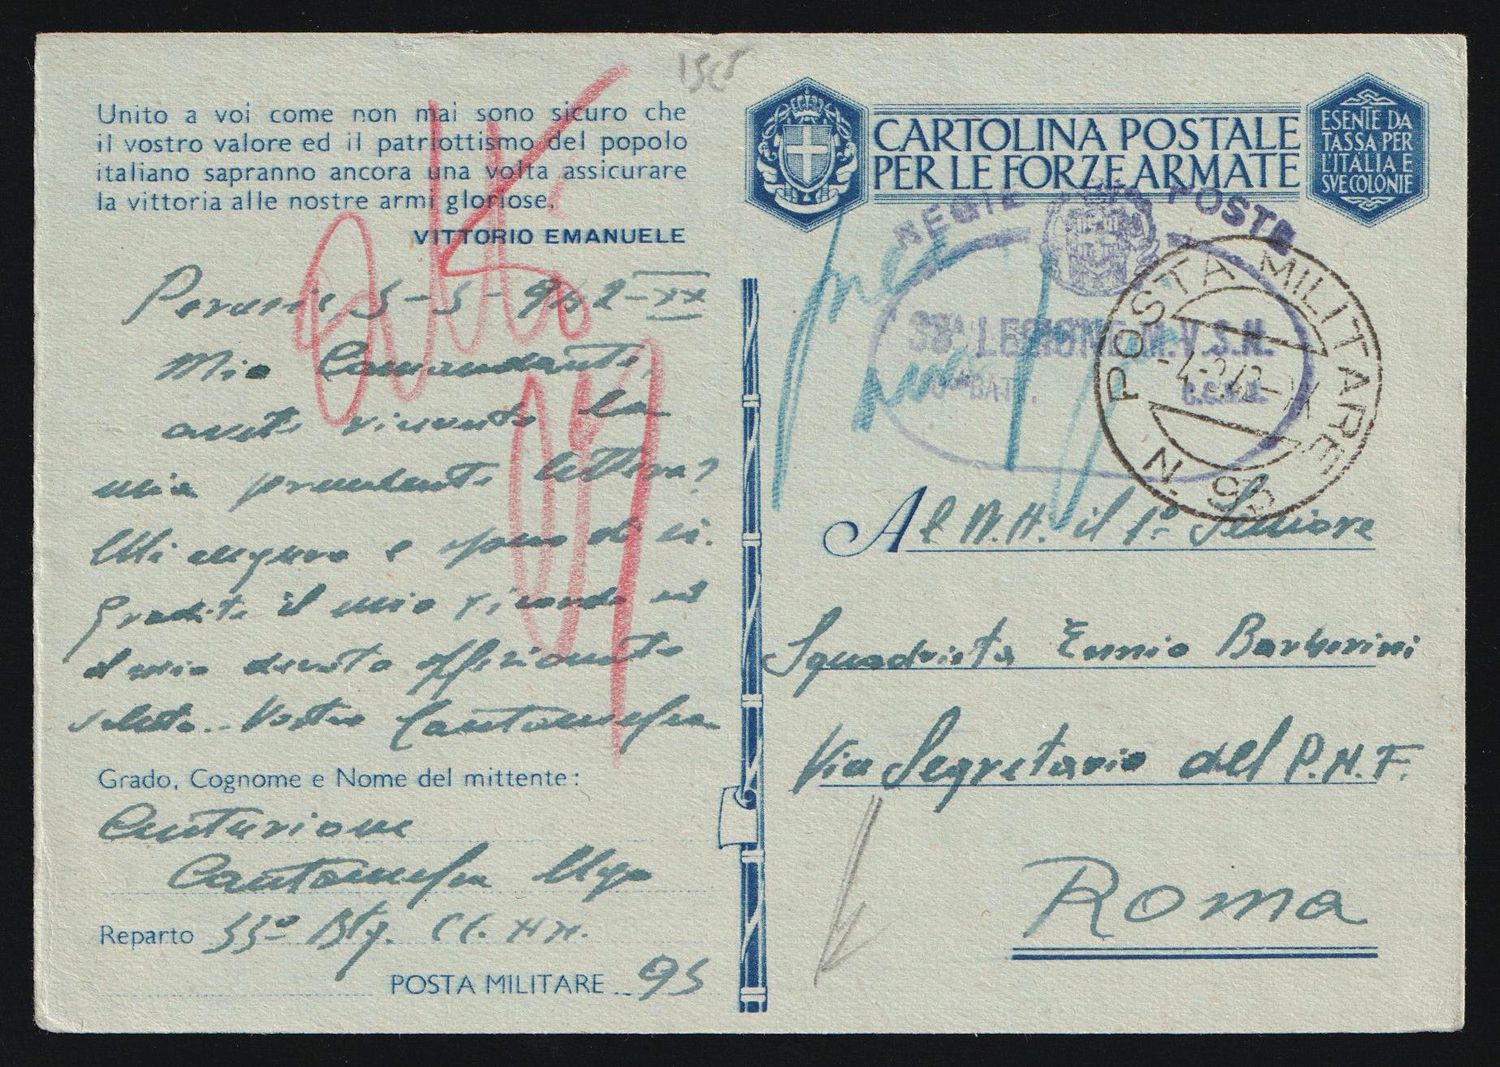 Unito a voi come non mai sono sicuro che
il vostro valore ed il patriottismo del popolo
italiano sapranno ancora una volta assicurare
la vittoria alle nostre armi gloriose.
VITTORIO EMANUELE
5-5-942-XX
Mio Comandante,
la
mia precedente lettera?
e spero di si.
Gradite il mio ricordo ed
il mio devoto affezionato
saluto. Vostro
Grado, Cognome e Nome del mittente:
Centurione
Ugo
Reparto 33º Btg. CC. NN.
POSTA MILITARE 95
CARTOLINA POSTALE
PER LE FORZE ARMATE
ESENTE DA
TASSA PER
L'ITALIA E
SVE COLONIE
REGIE POSTE
LEGIONE M.V.S.N.
BATT. CC.NN.
POSTA MILITARE
N. 95
Al N.H. il 1º Seniore
Squadrista Ennio Barberini
Via Segretario del P.N.F.
Roma